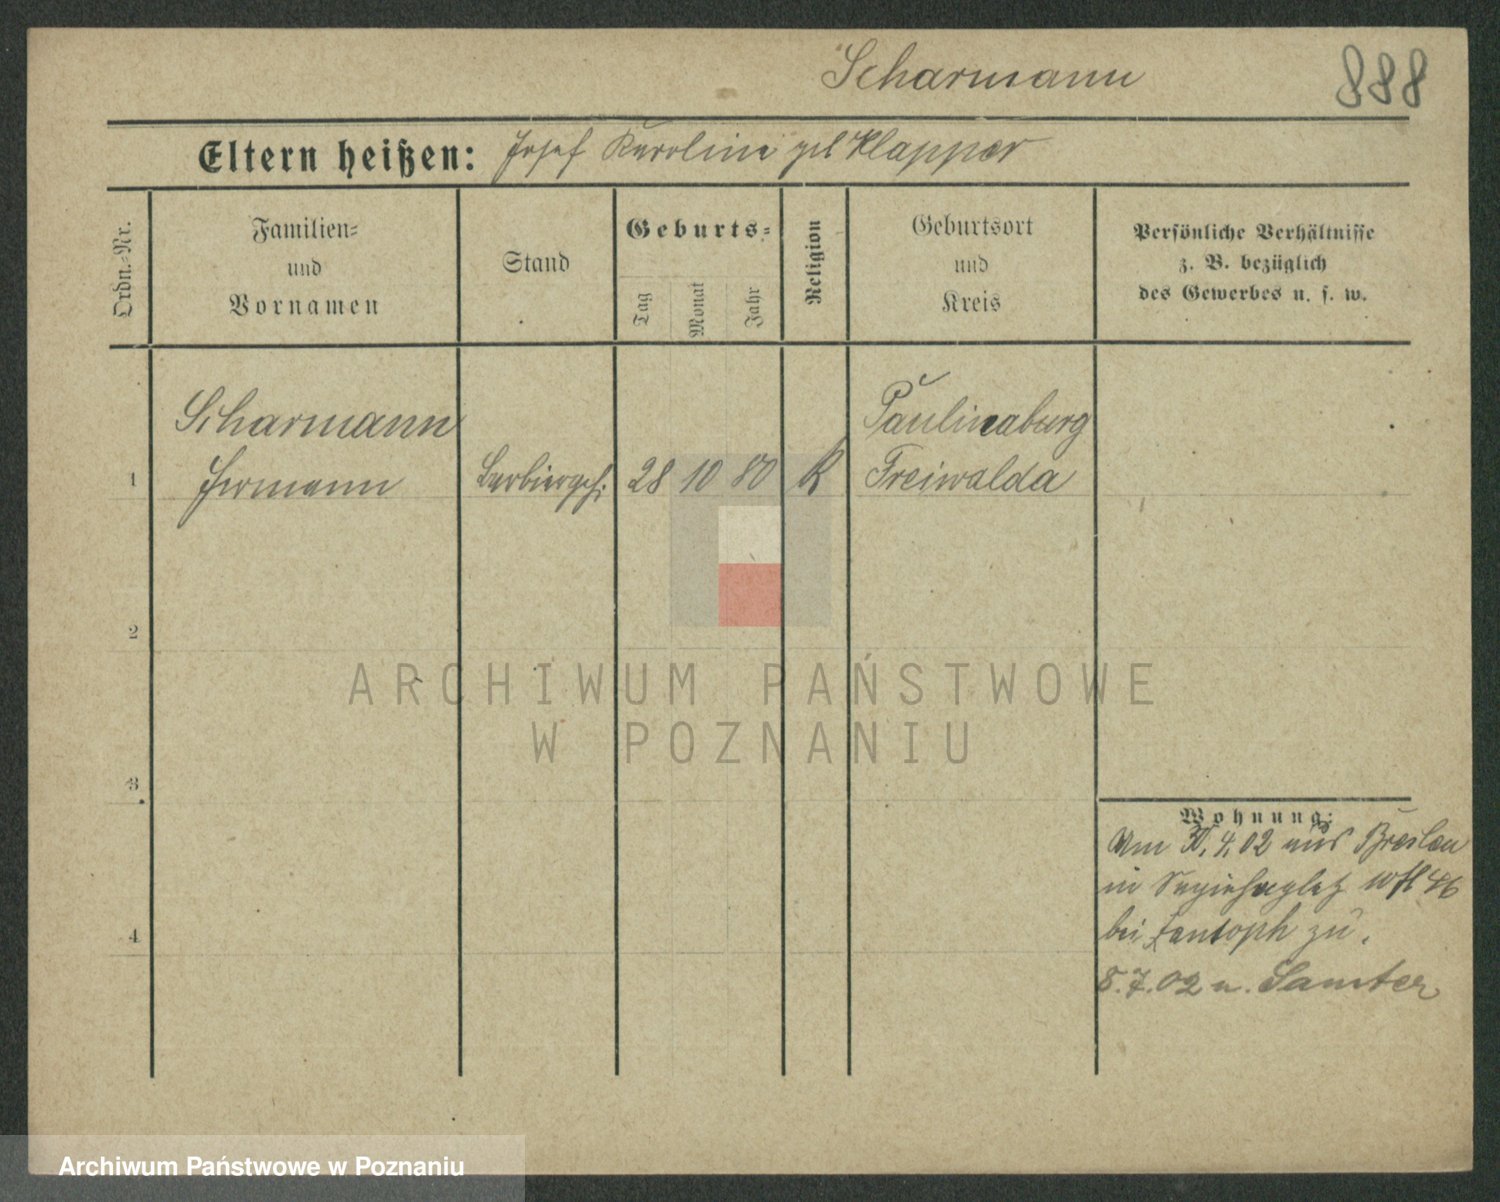 Scharmann
888
Eltern heißen: Josef Karolina geb Klapper
Ordn.-Nr.
Familien-
und
Vornamen
Stand
Geburts-
Tag
Monat
Jahr
Religion
Geburtsort
und
Kreis
Persönliche Verhältnisse
z. B. bezüglich
des Gewerbes u. s. w.
Scharmann
Paulinaburg
1 Hermann Barbiergeh. 28 10 80 K Freiwalda
2
3
4
Wohnung:
Am 30.4.02 aus Breslau
in
bei zu.
8.7.02 n. Samter
ARCHIWUM PAŃSTWOWE
W POZNANIU
Archiwum Państwowe w Poznaniu